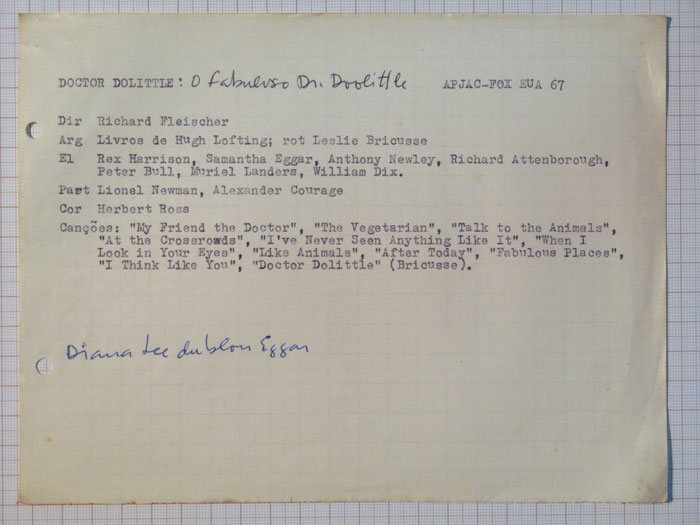 DOCTOR DOLITTLE: O fabuloso Dr. Doolittle APJAC-FOX EUA 67
Dir Richard Fleischer
Arg Livros de Hugh Lofting; rot Leslie Bricusse
El Rex Harrison, Samantha Eggar, Anthony Newley, Richard Attenborough,
Peter Bull, Muriel Landers, William Dix.
Part Lionel Newman, Alexander Courage
Cor Herbert Ross
Canções: "My Friend the Doctor", "The Vegetarian", "Talk to the Animals",
"At the Crossrowds", "I've Never Seen Anything Like It", "When I
Look in Your Eyes", "Like Animals", "After Today", "Fabulous Places",
"I Think Like You", "Doctor Dolittle" (Bricusse).
Diana Lee dublou Eggar